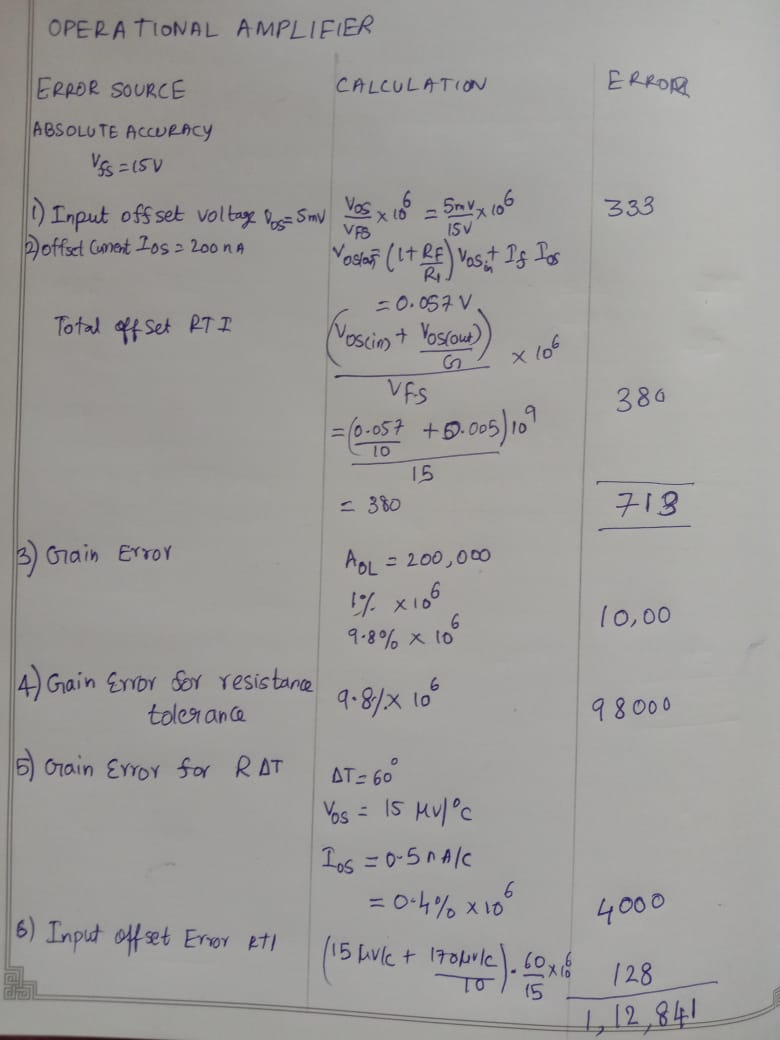 OPERATIONAL AMPLIFIER
ERROR SOURCE CALCULATION ERROR
ABSOLUTE ACCURACY
Vfs = 15V
1) Input offset voltage Vos = 5mV Vos/VFS × 10^6 = 5mV/15V × 10^6 333
2) offset Current Ios = 200 nA (1 + RF/R1) Vos in + If Ios
= 0.057 V
Total offset RTI (Vos(in) + Vos(out)/G) / VFS × 10^6
380
= (0.057/10 + 0.005) 10^9 / 15
= 380 713
3) Gain Error AOL = 200,000
1% × 10^6 10,00
9.8% × 10^6
4) Gain Error for resistance 9.8% × 10^6 98000
tolerance
5) Gain Error for R ΔT ΔT = 60°
Vos = 15 μV/°C
Ios = 0.5 nA/C
= 0.4% × 10^6 4000
6) Input offset Error RTI (15 μV/c + 170μV/c / 10) · 60/15 × 10^6 128
1,12,841